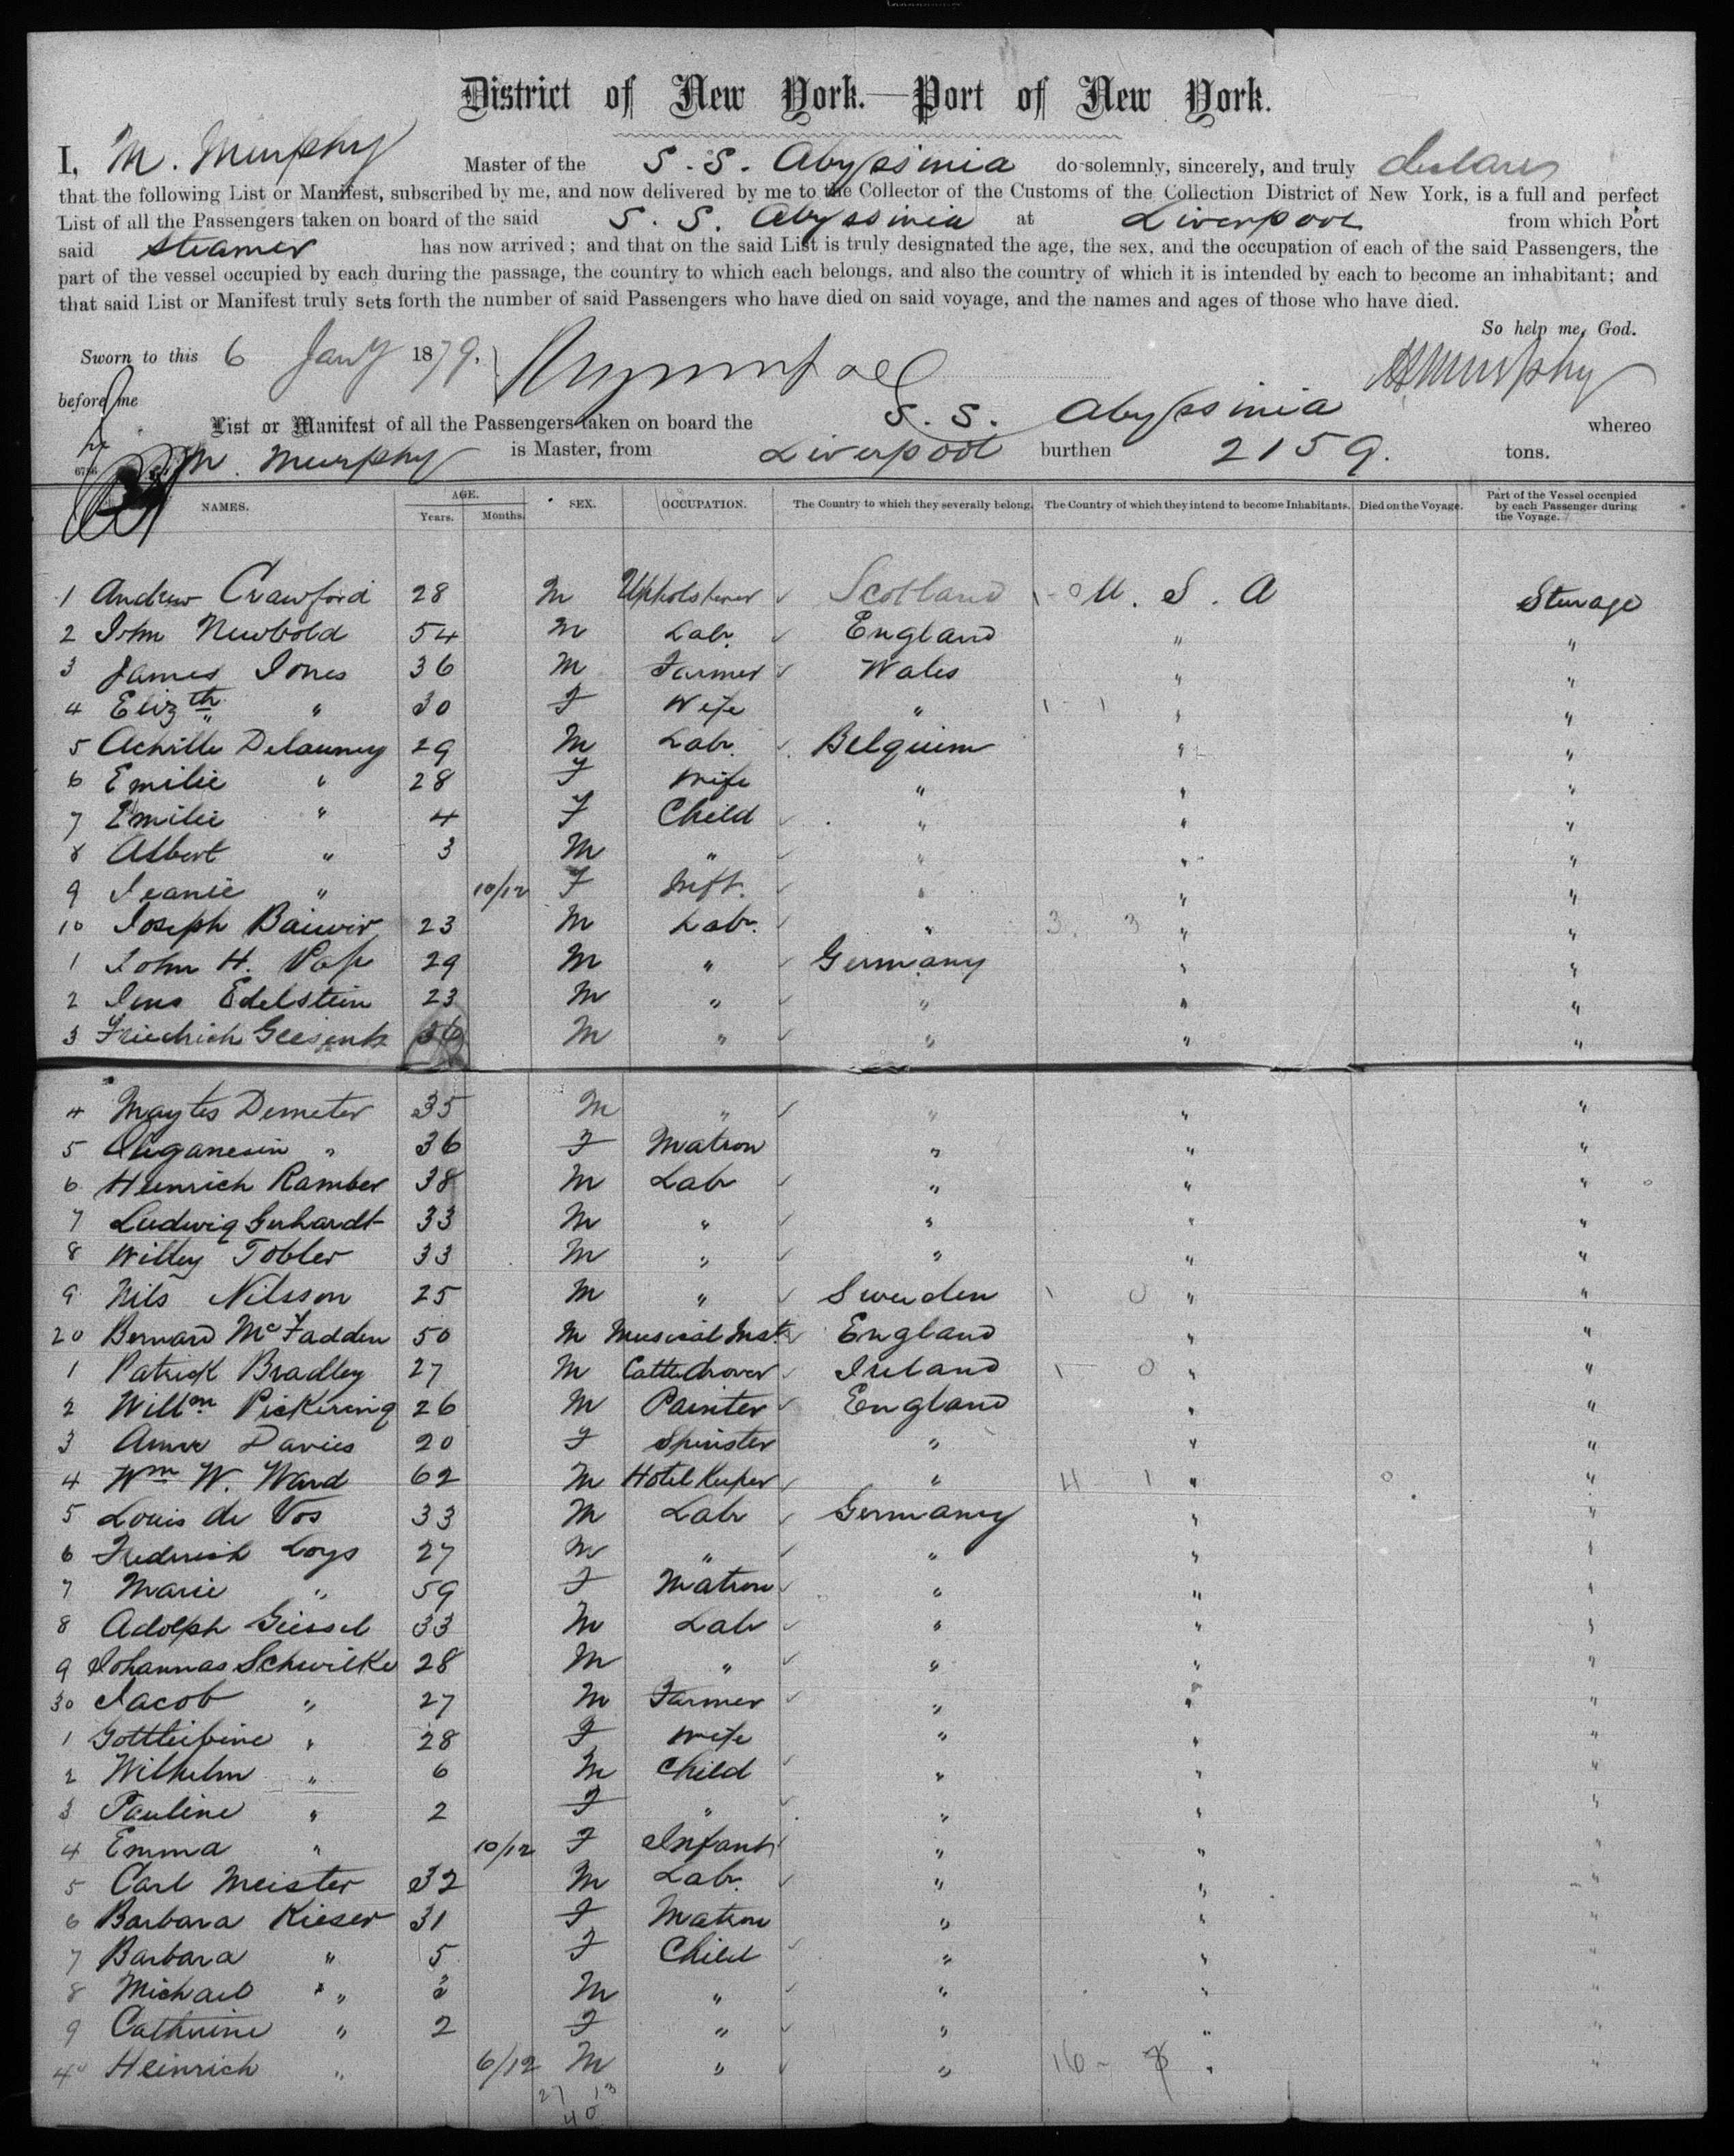 District of New York.—Port of New York.
I, M. Murphy Master of the S. S. Abyssinia do solemnly, sincerely, and truly declare
that the following List or Manifest, subscribed by me, and now delivered by me to the Collector of the Customs of the Collection District of New York, is a full and perfect
List of all the Passengers taken on board of the said S. S. Abyssinia at Liverpool from which Port
said Steamer has now arrived; and that on the said List is truly designated the age, the sex, and the occupation of each of the said Passengers, the
part of the vessel occupied by each during the passage, the country to which each belongs, and also the country of which it is intended by each to become an inhabitant; and
that said List or Manifest truly sets forth the number of said Passengers who have died on said voyage, and the names and ages of those who have died.
So help me, God.
Sworn to this 6 Jany 1879.
Murphy
before me
List or Manifest of all the Passengers taken on board the S. S. Abyssinia whereo
M. Murphy is Master, from Liverpool burthen 2159. tons.
NAMES. AGE. Years. Months. SEX. OCCUPATION. The Country to which they severally belong. The Country of which they intend to become Inhabitants. Died on the Voyage. Part of the Vessel occupied by each Passenger during the Voyage.
1 Andrew Crawford 28 M Upholsterer Scotland U. S. A Sterage
2 John Newbold 54 M Labr. England " "
3 James Jones 36 M Farmer Wales " "
4 Elizth " 30 F Wife " 1 - 1 " "
5 Achille Delauney 29 M Labr. Belguim " "
6 Emilie " 28 F Wife " " "
7 Emilie " 4 F Child " " "
8 Albert " 3 M " " " "
9 Jeanie " 10/12 F Inft. " " "
10 Joseph Baiwir 23 M Labr. " 3. 3 " "
1 John H. 29 M " Germany " "
2 Jens Edelstein 23 M " " " "
3 Friedrich 36 M " " " "
4 Maytes Demeter 35 M " " " "
5 " 36 F Matron " " "
6 Heinrich Ramber 38 M Labr " " "
7 Ludwig Gerhardt 33 M " " " "
8 Willey Tobler 33 M " " " "
9 Nils Nilsson 25 M " Sweden 1 0 " "
20 Bernard McFadden 50 M Musical Inst. England " "
1 Patrick Bradley 27 M Cattledrover Ireland 1 - 0 " "
2 Willm Pickering 26 M Painter England " "
3 Anne Davies 20 F Spinster " " "
4 Wm W. Ward 62 M Hotel Keeper " 4 1 " "
5 Louis de Vos 33 M Labr Germany " "
6 Frederich Loys 27 M " " " "
7 Marie " 59 F Matron " " "
8 Adolph Giessel 33 M Labr " " "
9 Johannas Schwilke 28 M " " " "
30 Jacob " 27 M Farmer " " "
1 Gottleibine " 28 F Wife " " "
2 Wilhelm " 6 M Child " " "
3 Pauline " 2 F " " " "
4 Emma " 10/12 F Infant " " "
5 Carl Meister 32 M Labr. " " "
6 Barbara Kieser 31 F Matron " " "
7 Barbara " 5 F Child " " "
8 Michael " 3 M " " " "
9 Catherine " 2 F " " " "
40 Heinrich " 6/12 M " " 16 - 8 " "
27 13
40